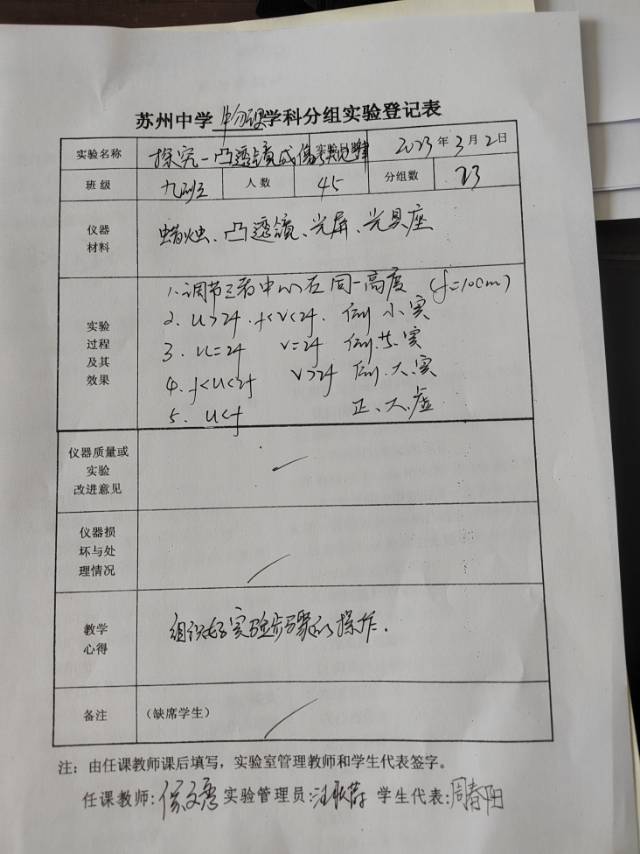 苏州中学 物理 学科分组实验登记表
实验名称 探究凸透镜成像 2023年3月2日
班级 九 人数 45 分组数 23
仪器材料 蜡烛、凸透镜、光屏、光具座
实验过程及其效果
1.调节三者中心在同一高度 (f=10cm)
2. u>2f. f<v<2f. 倒 小.实
3. u=2f v=2f 倒.等.实
4. f<u<2f v>2f 倒.大.实
5. u<f 正、大.虚
仪器质量或
实验
改进意见
仪器损
坏与处
理情况
教学
心得 组织好实验步骤的操作.
备注 (缺席学生)
注：由任课教师课后填写，实验室管理教师和学生代表签字。
任课教师: 实验管理员: 学生代表:周春阳